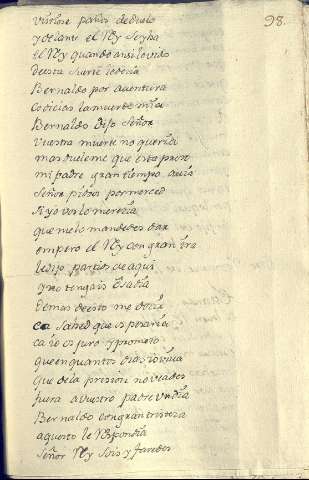 98.
vistiose paños de duelo
y delante el Rey se yba
el Rey quando ansi lo vido
desta suerte le decia
Bernaldo por aventura
codicias la muerte mia
Bernaldo dijo Señor
vuestra muerte no queria
mas dueleme que esta preso
mi padre gran tiempo avia
Señor pidoos por merced
si yo vos lo merecia
que me lo mandedes dar
empero el Rey con gran yra
le dijo partios de aqui
y no tengais osadia
de mas desto me decir
ca sabed que os pesaria
ca io os juro y prometo
que en quantos dias io viva
que de la prision no veades
fuera a vuestro padre un dia
Bernaldo con gran tristeza
aquesto le Respondia
Señor Rey sois y faredes